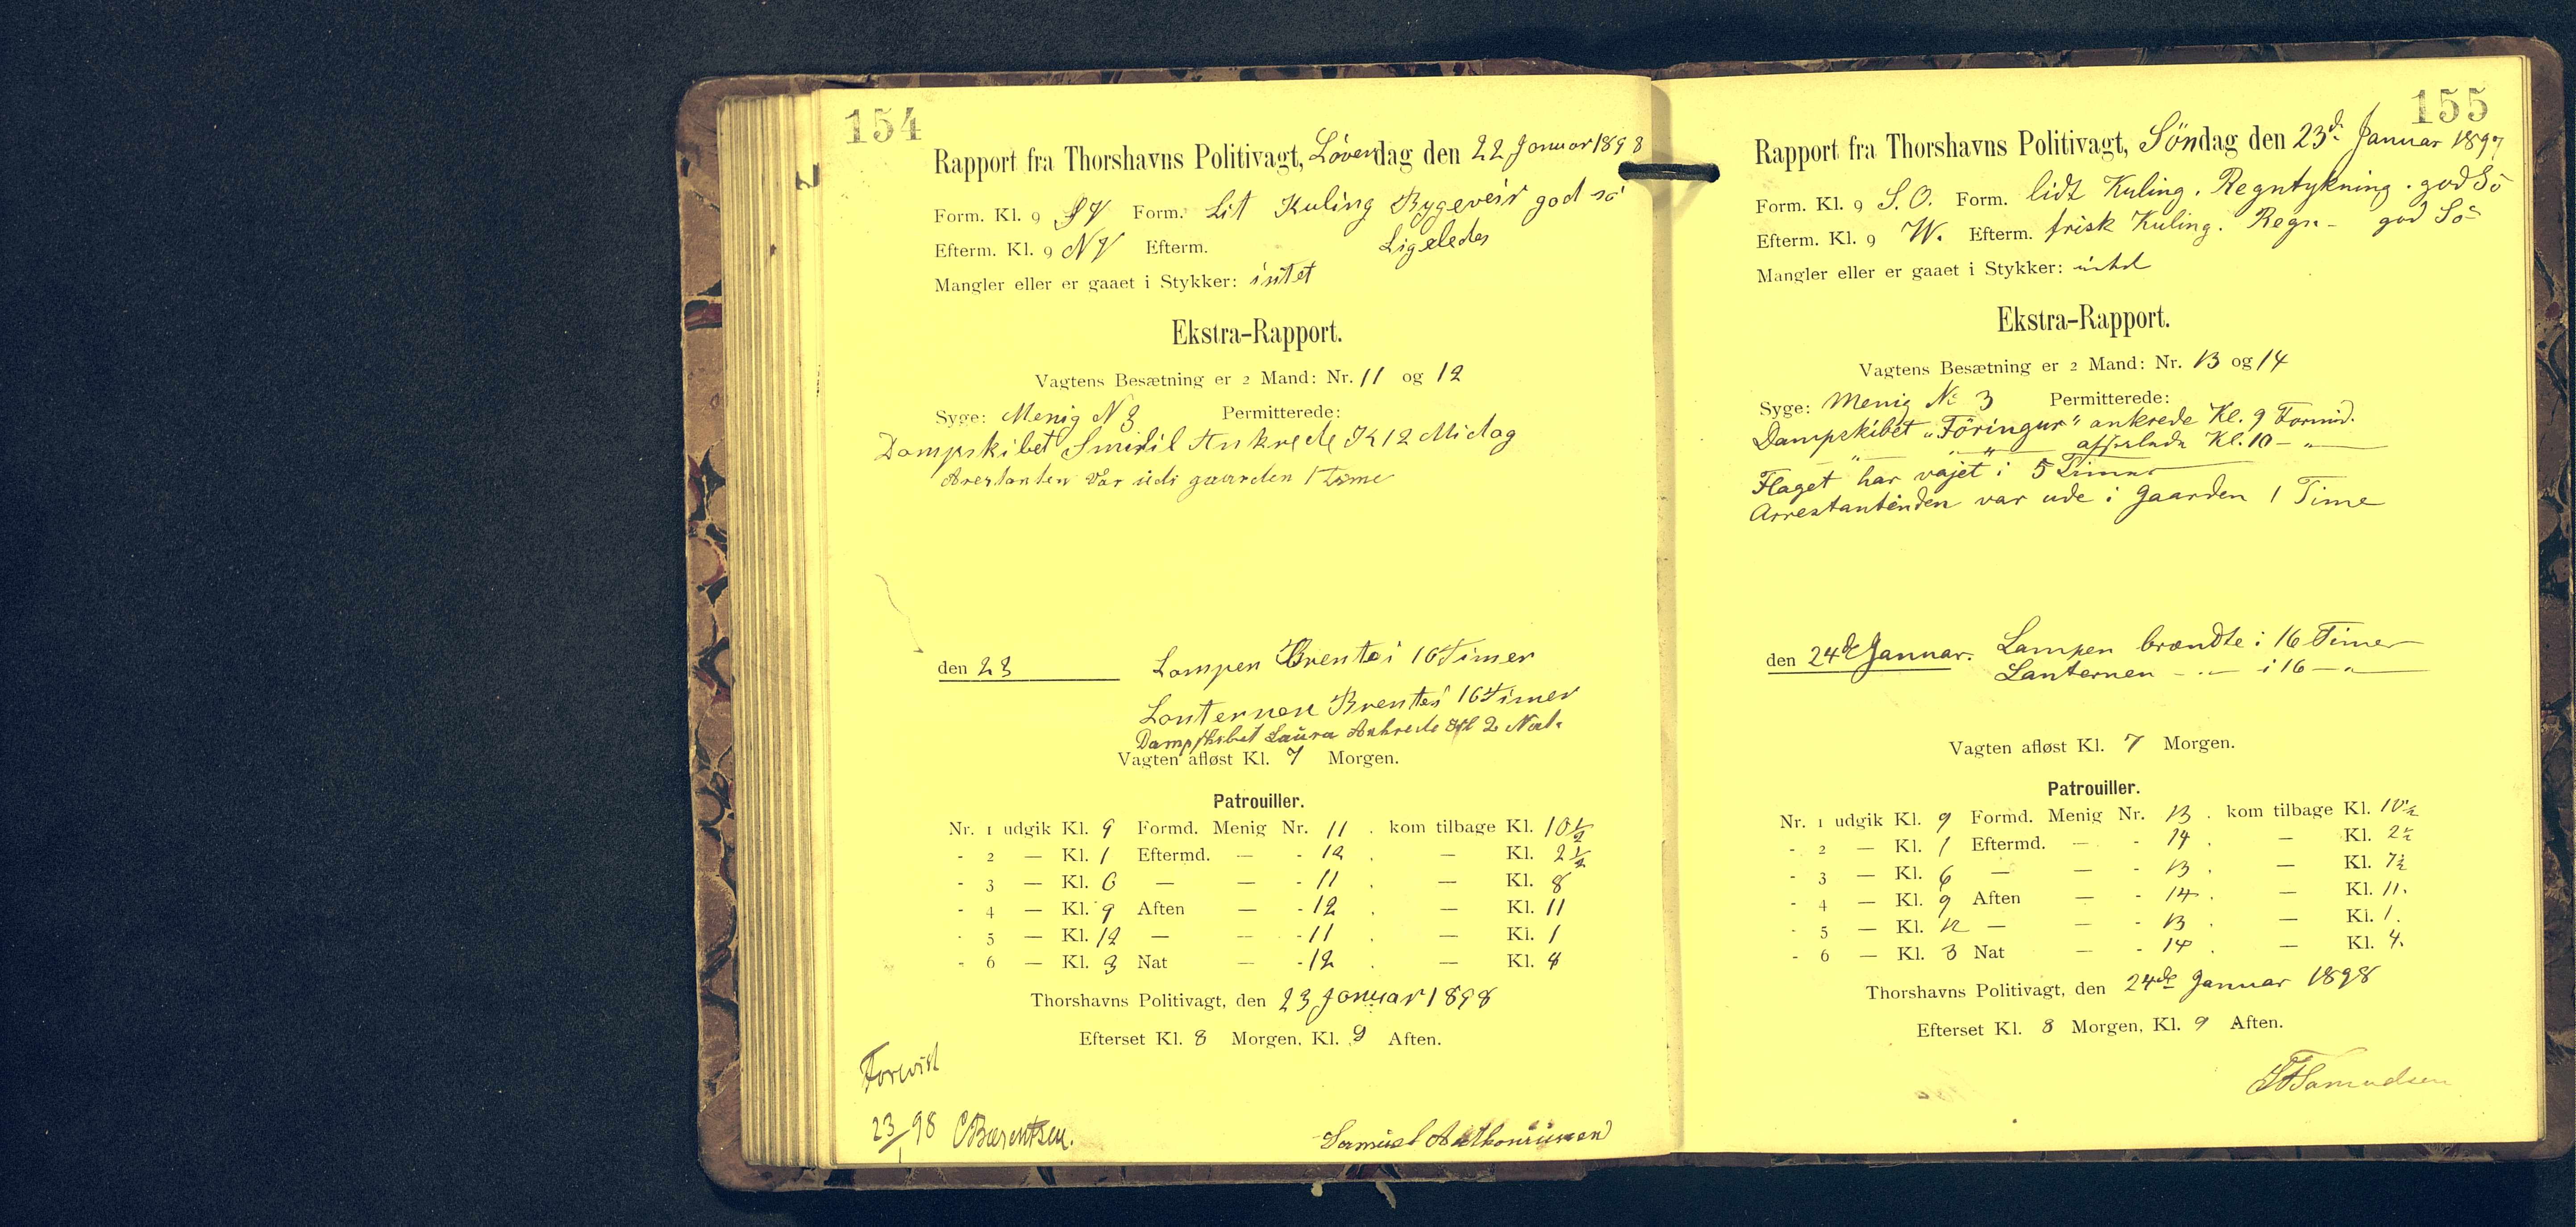 154
Rapport fra Thorshavns Politivagt, Løverdag den 22 Januar 1898
Form. Kl. 9 SV Form. Lit Kuling Bygeveir god sö
Efterm. Kl. 9 NV Efterm. Ligeledes
Mangler eller er gaaet i Stykker: intet
Ekstra-Rapport.
Vagtens Besætning er 2 Mand: Nr. 11 og 12
Syge: Menig N 3 Permitterede:
Dampskibet Smiril Ankrede Kl 12 Midag
Arestanten var udi gaarden 1 Time
den 23 Lampen Brente i 16 Timer
Lanternen Brente i 16 Timer
Dampskibet Laura Ankrede Kl 2 Nat.
Vagten afløst Kl. 7 Morgen.
Patrouiller.
Nr. 1 udgik Kl. 9 Formd. Menig Nr. 11 . kom tilbage Kl. 10 1/2
- 2 — Kl. 1 Eftermd. — - 12 . — Kl. 2 1/2
- 3 — Kl. 6 — — - 11 . — Kl. 8
- 4 — Kl. 9 Aften — - 12 . — Kl. 11
- 5 — Kl. 12 — — - 11 . — Kl. 1
- 6 — Kl. 3 Nat — - 12 . — Kl. 4
Thorshavns Politivagt, den 23 Januar 1898
Efterset Kl. 8 Morgen, Kl. 9 Aften.
Forevist
23/1 98 CBærentsen.
Samuel
155
Rapport fra Thorshavns Politivagt, Söndag den 23d. Januar 1897
Form. Kl. 9 S.O. Form. lidt Kuling. Regntykning. god Sö
Efterm. Kl. 9 W. Efterm. frisk Kuling. Regn - god Sö
Mangler eller er gaaet i Stykker: intet
Ekstra-Rapport.
Vagtens Besætning er 2 Mand: Nr. 13 og 14
Syge: Menig No 3 Permitterede:
Dampskibet „Föringur" ankrede Kl. 9 Formd.
— " — " — afseilede Kl. 10 — " —
Flaget har vajet i 5 Timer
Arrestantinden var ude i Gaarden 1 Time
den 24de Januar. Lampen brændte i 16 Timer
Lanternen - " - i 16 — " —
Vagten afløst Kl. 7 Morgen.
Patrouiller.
Nr. 1 udgik Kl. 9 Formd. Menig Nr. 13 . kom tilbage Kl. 10 1/2
- 2 — Kl. 1 Eftermd. — - 14 . — Kl. 2 1/2
- 3 — Kl. 6 — — - 13 . — Kl. 7 1/2
- 4 — Kl. 9 Aften — - 14 . — Kl. 11.
- 5 — Kl. 12 — — - 13 . — Kl. 1.
- 6 — Kl. 3 Nat — - 14 . — Kl. 4.
Thorshavns Politivagt, den 24de Januar 1898
Efterset Kl. 8 Morgen, Kl. 9 Aften.